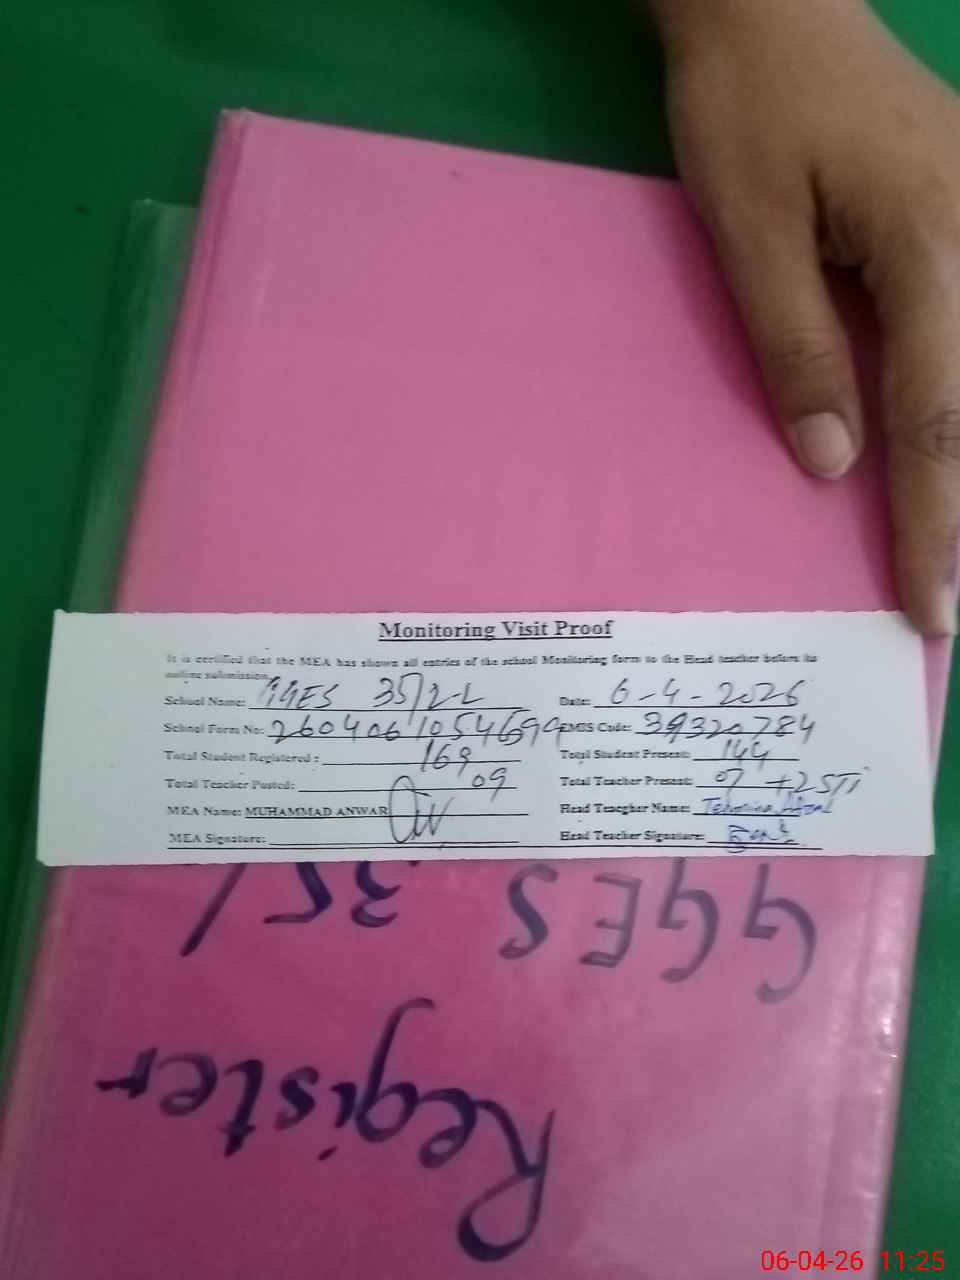 Monitoring Visit Proof
It is certified that the MEA has shown all entries of the school Monitoring form to the Head teacher before its
online submission.
School Name: GGES 35/2-L Date: 6-4-2026
School Form No: 260406105469 EMIS Code: 39320784
Total Student Registered : 169 Total Student Present: 144
Total Teacher Posted: 09 Total Teacher Present: 07 +2 STI
MEA Name: MUHAMMAD ANWAR Head Teacher Name: Afzal
MEA Signature: Head Teacher Signature:
GGES 35/
Register
06-04-26 11:25